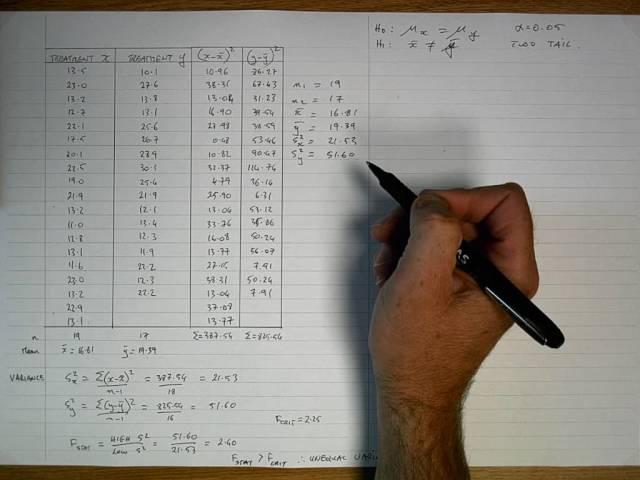 H₀: μx = μy α=0.05
H₁: x̄ ≠ ȳ TWO TAIL.
TREATMENT X TREATMENT Y (x-x̄)² (y-ȳ)²
13.5 10.1 10.96
23.0 27.6 38.31 67.43
13.2 13.8 13.04 31.23
12.7 13.1 16.90
22.1 25.6 27.98 38.59
17.5 26.7 0.48 53.46
20.1 28.9 10.82 90.47
22.5 30.1 32.37 114.74
19.0 25.4 4.79 36.14
21.9 21.9 25.90 6.31
13.2 12.1 13.04 53.12
11.0 13.4 33.76
12.8 12.3 16.08 50.24
13.1 11.9 13.77 56.07
11.6 22.2 7.91
23.0 12.3 38.31 50.24
13.2 22.2 13.04 7.91
22.9 37.08
13.1 13.77
n₁ = 19
n₂ = 17
x̄ = 16.81
ȳ = 19.39
S²x = 21.53
S²y = 51.60
n 19 17 Σ=387.54 Σ=825.54
MEAN x̄=16.81 ȳ=19.39
VARIANCE S²x = Σ(x-x̄)²/n-1 = 387.54/18 = 21.53
S²y = Σ(y-ȳ)²/n-1 = 825.54/16 = 51.60
FCRIT = 2.25
FSTAT = HIGH S²/LOW S² = 51.60/21.53 = 2.40
FSTAT > FCRIT ∴ UNEQUAL VARI